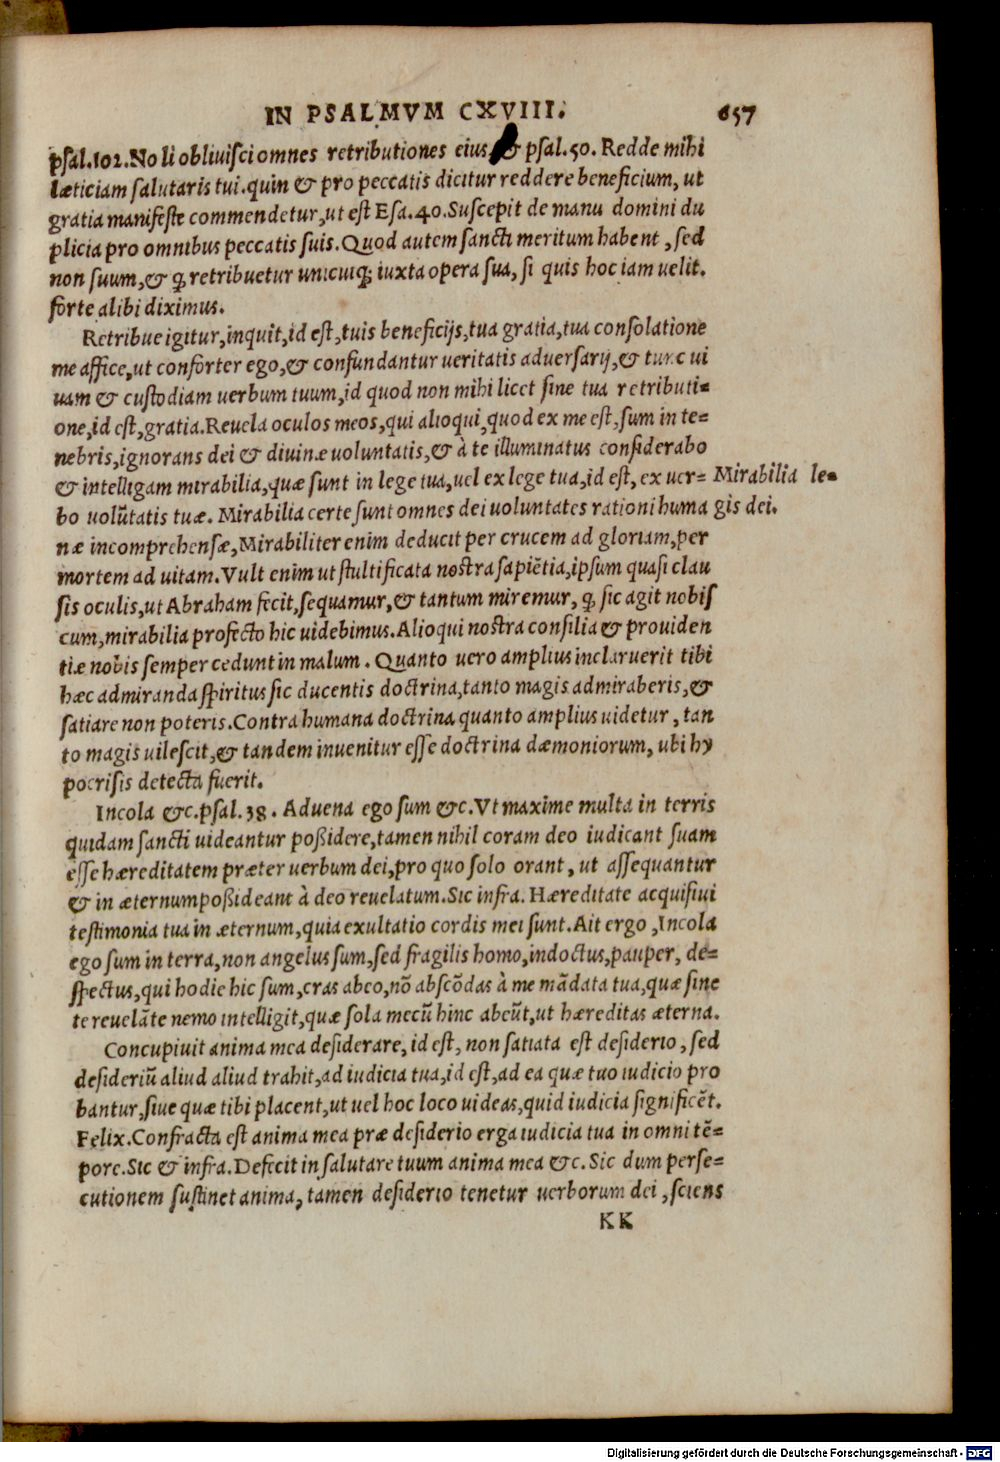 IN PSALMVM CXVIII. 657
psal.102.Noli obliuisci omnes retributiones eius, & psal.50. Redde mihi
læticiam salutaris tui.quin & pro peccatis dicitur reddere beneficium, ut
gratia manifeste commendetur,ut est Esa.40.Suscepit de manu domini du
plicia pro omnibus peccatis suis.Quod autem sancti meritum habent, sed
non suum,& ꝙ retribuetur unicuiqꝫ iuxta opera sua, si quis hoc iam uelit.
forte alibi diximus.
Retribue igitur,inquit,id est,tuis beneficijs,tua gratia,tua consolatione
me affice,ut conforter ego,& confundantur ueritatis aduersarij,& tunc ui
uam & custodiam uerbum tuum,id quod non mihi licet sine tua retributi=
one,id est,gratia.Reuela oculos meos,qui alioqui,quod ex me est,sum in te=
nebris,ignorans dei & diuinæ uoluntatis,& à te illuminatus considerabo
& intelligam mirabilia,quæ sunt in lege tua,uel ex lege tua,id est, ex uer= Mirabilia le=
bo uolūtatis tuæ. Mirabilia certe sunt omnes dei uoluntates rationi huma gis dei.
næ incomprehensæ,Mirabiliter enim deducit per crucem ad gloriam,per
mortem ad uitam.Vult enim ut stultificata nostra sapiētia,ipsum quasi clau
sis oculis,ut Abraham fecit,sequamur,& tantum miremur, ꝙ sic agit nobis
cum,mirabilia profecto hic uidebimus.Alioqui nostra consilia & prouiden
tiæ nobis semper cedunt in malum. Quanto uero amplius inclaruerit tibi
hæc admiranda spiritus sic ducentis doctrina,tanto magis admiraberis,&
satiare non poteris.Contra humana doctrina quanto amplius uidetur, tan
to magis uilescit,& tandem inuenitur esse doctrina dæmoniorum, ubi hy
pocrisis detecta fuerit.
Incola &c.psal.38. Aduena ego sum &c.Vt maxime multa in terris
quidam sancti uideantur possidere,tamen nihil coram deo iudicant suam
esse hæreditatem præter uerbum dei,pro quo solo orant, ut assequantur
& in æternum possideant à deo reuelatum.Sic infra. Hæreditate acquisiui
testimonia tua in æternum,quia exultatio cordis mei sunt.Ait ergo,Incola
ego sum in terra,non angelus sum,sed fragilis homo,indoctus,pauper, de=
spectus,qui hodie hic sum,cras abeo,nō abscōdas à me mādata tua,quæ sine
te reuelāte nemo intelligit,quæ sola mecū hinc abeūt,ut hæreditas æterna.
Concupiuit anima mea desiderare,id est, non satiata est desiderio, sed
desideriū aliud aliud trahit,ad iudicia tua,id est,ad ea quæ tuo iudicio pro
bantur,siue quæ tibi placent,ut uel hoc loco uideas,quid iudicia significēt.
Felix.Confracta est anima mea præ desiderio erga iudicia tua in omni tē=
pore.Sic & infra.Defecit in salutare tuum anima mea &c. Sic dum perse=
cutionem sustinet anima, tamen desiderio tenetur uerborum dei, sciens
KK
Digitalisierung gefördert durch die Deutsche Forschungsgemeinschaft - DFG